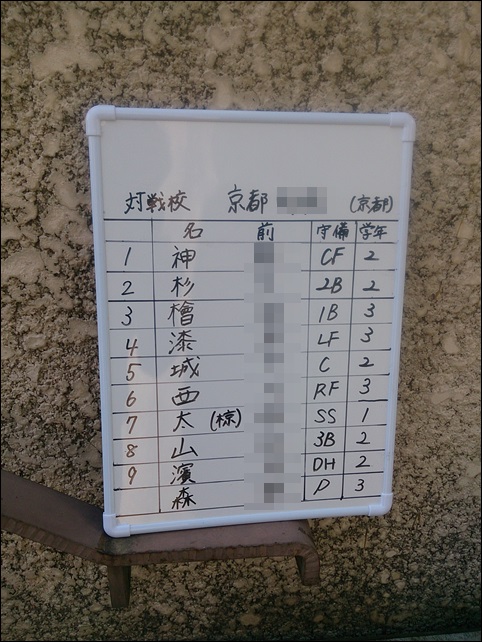 対戦校 京都 (京都)
名 前 守備 学年
1 神 CF 2
2 杉 2B 2
3 檜 1B 3
4 漆 LF 3
5 城 C 2
6 西 RF 3
7 太 (椋) SS 1
8 山 3B 2
9 濱 DH 2
森 P 3